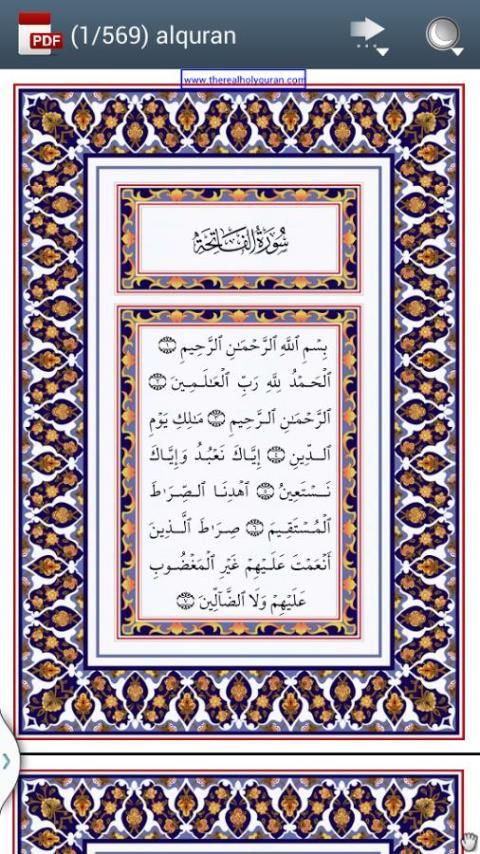 PDF (1/569) alquran
www.therealholyquran.com
سُورَةُ الفَاتِحَةِ
بِسْمِ ٱللَّهِ ٱلرَّحْمَٰنِ ٱلرَّحِيمِ ١
ٱلْحَمْدُ لِلَّهِ رَبِّ ٱلْعَٰلَمِينَ ٢
ٱلرَّحْمَٰنِ ٱلرَّحِيمِ ٣ مَٰلِكِ يَوْمِ
ٱلدِّينِ ٤ إِيَّاكَ نَعْبُدُ وَإِيَّاكَ
نَسْتَعِينُ ٥ ٱهْدِنَا ٱلصِّرَٰطَ
ٱلْمُسْتَقِيمَ ٦ صِرَٰطَ ٱلَّذِينَ
أَنْعَمْتَ عَلَيْهِمْ غَيْرِ ٱلْمَغْضُوبِ
عَلَيْهِمْ وَلَا ٱلضَّآلِّينَ ٧